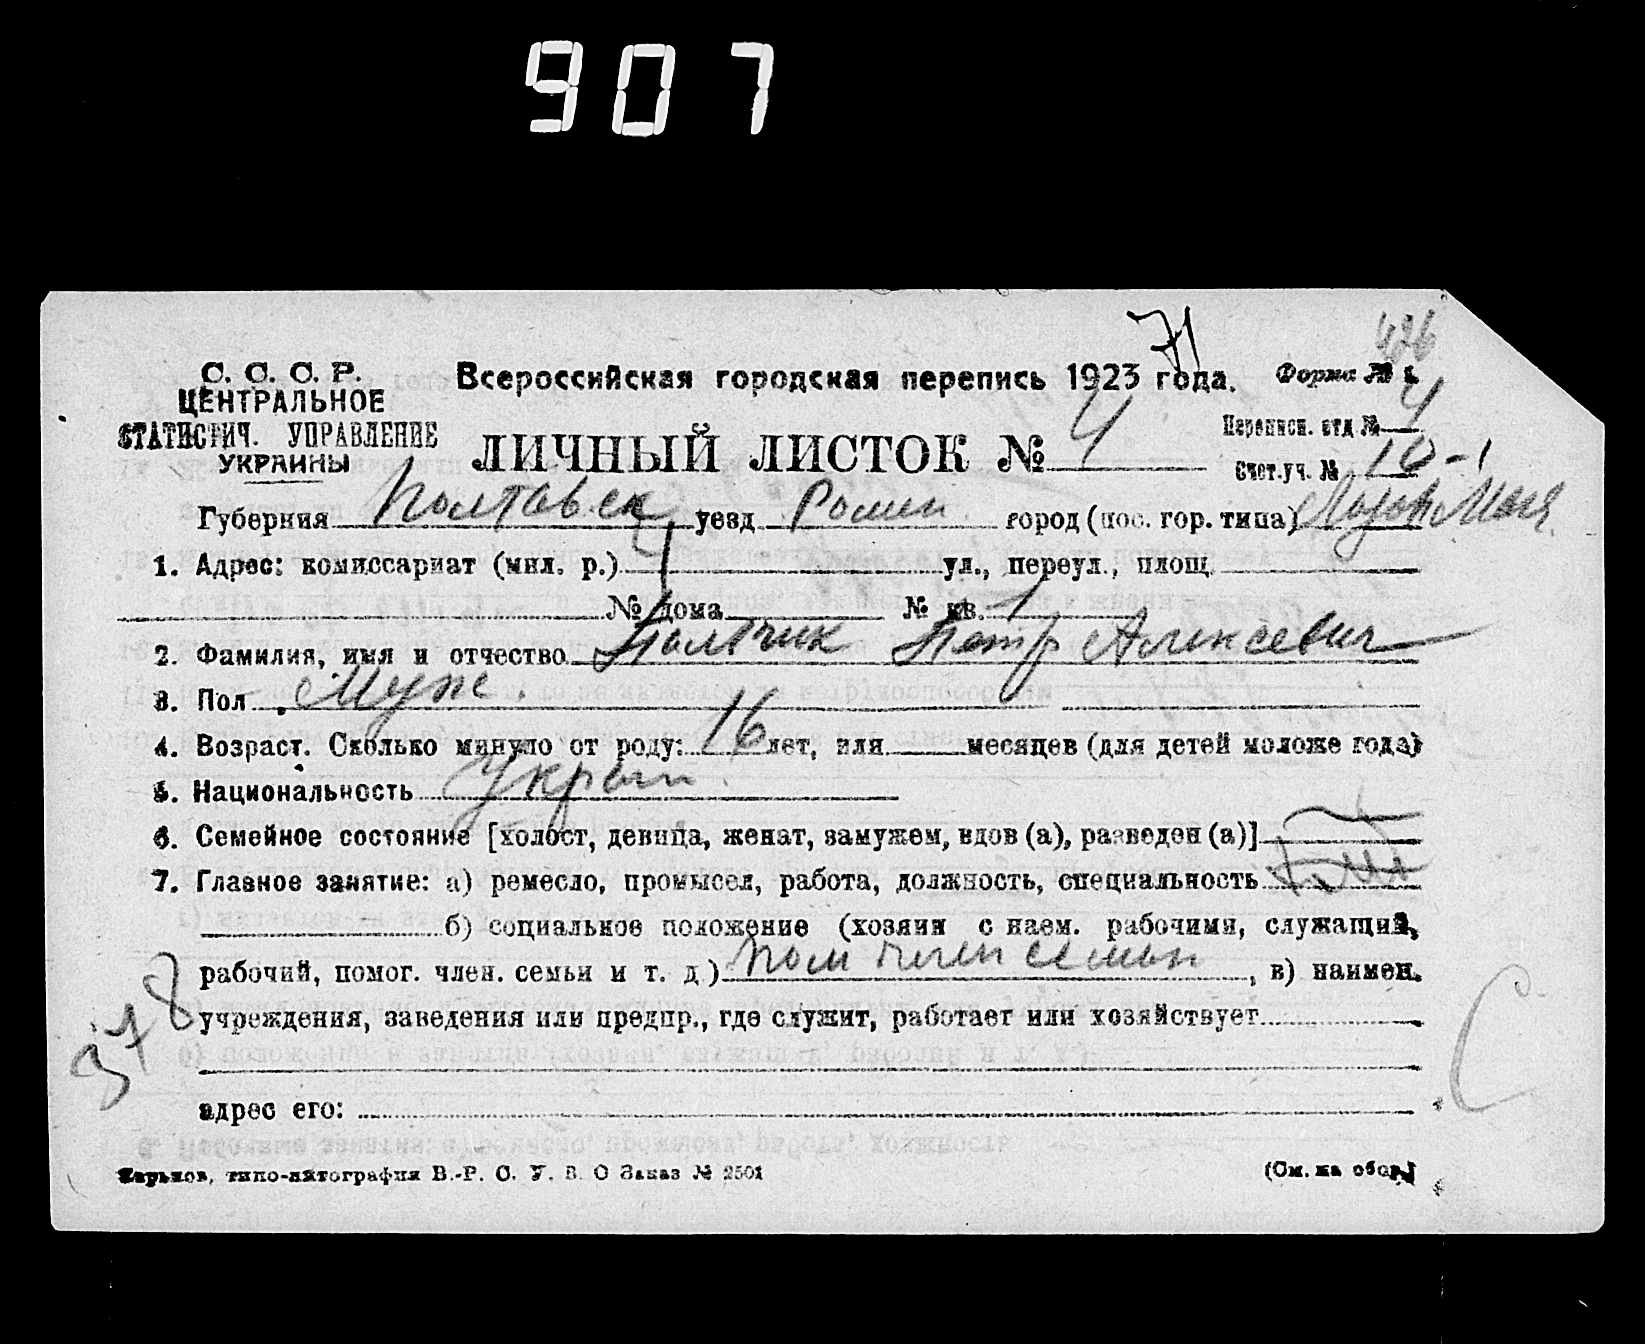 907
71
426
С. С. С. Р.
ЦЕНТРАЛЬНОЕ
СТАТИСТИЧ. УПРАВЛЕНИЕ
УКРАИНЫ
Всероссийская городская перепись 1923 года.
Форма № 1.
ЛИЧНЫЙ ЛИСТОК № 4
Переписн. отд № 4
Счет.уч. № 10-1
Губерния Полтавск уезд Ромен город (пос. гор. типа)
1. Адрес: комиссариат (мил. р.) 4 ул., переул., площ.
№ дома № кв. 1
2. Фамилия, имя и отчество Петр Алексевич
3. Пол Муж.
4. Возраст. Сколько минуло от роду: 16 лет, или месяцев (для детей моложе года)
5. Национальность
6. Семейное состояние [холост, девица, женат, замужем, вдов (а), разведен (а)]
7. Главное занятие: а) ремесло, промысел, работа, должность, специальность
б) социальное положение (хозяин с наем. рабочими, служащий,
рабочий, помог. член. семьи и т. д.) пом член семьи, в) наимен.
учреждения, заведения или предпр., где служит, работает или хозяйствует
378
адрес его:
С
Харьков, типо-литография В.-Р. С. У. В. О Заказ № 2501
(См. на обор.)